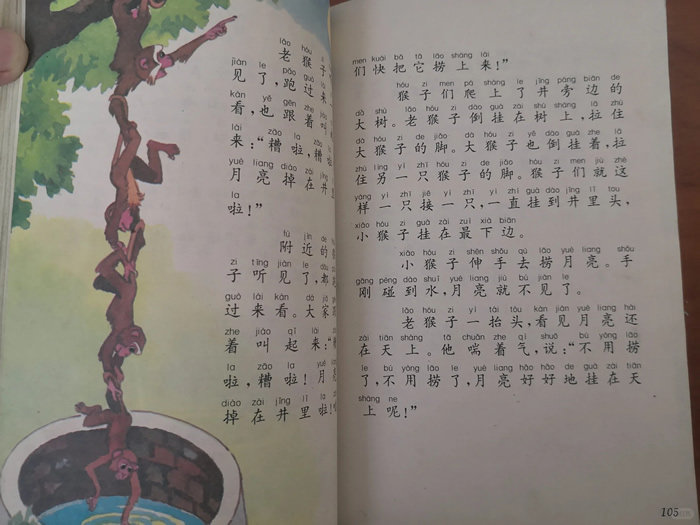 lǎo hóu
老猴子
jiàn le pǎo guò lái
见了，跑过来
kàn yě gēn zhe jiào
看，也跟着叫
lái zāo la zāo
来：“糟啦，糟啦
yuè liang diào zài jǐng
月亮掉在井
la
啦！”
fù jìn de
附近的
zi tīng jiàn le dōu
子听见了，都
guò lái kàn dà jiā
过来看。大家
zhe jiào qǐ lái
着叫起来：“
la zāo la yuè
啦，糟啦！月
diào zài jǐng lǐ la
掉在井里啦！
men kuài bǎ tā lāo shàng lái
们快把它捞上来！”
hóu zi men pá shàng le jǐng páng biān de
猴子们爬上了井旁边的
dà shù lǎo hóu zi dào guà zài shù shàng lā zhù
大树。老猴子倒挂在树上，拉住
dà hóu zi de jiǎo dà hóu zi yě dào guà zhe lā
大猴子的脚。大猴子也倒挂着，拉
zhù lìng yì zhī hóu zi de jiǎo hóu zi men jiù zhè
住另一只猴子的脚。猴子们就这
yàng yì zhī jiē yì zhī yì zhí guà dào jǐng lǐ tou
样一只接一只，一直挂到井里头，
xiǎo hóu zi guà zài zuì xià biān
小猴子挂在最下边。
xiǎo hóu zi shēn shǒu qù lāo yuè liang shǒu
小猴子伸手去捞月亮。手
gāng pèng dào shuǐ yuè liang jiù bú jiàn le
刚碰到水，月亮就不见了。
lǎo hóu zi yì tái tóu kàn jiàn yuè liang hái
老猴子一抬头，看见月亮还
zài tiān shàng tā chuǎn zhe qì shuō bú yòng lāo
在天上。他喘着气，说：“不用捞
le bú yòng lāo le yuè liang hǎo hǎo de guà zài tiān
了，不用捞了，月亮好好地挂在天
shàng ne
上呢！”
105